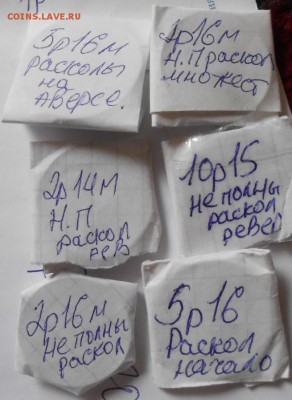 COINS.LAVE.RU
5р16м
расколы
на
Аверсе.
1р16м
Н.П раскол
множест
2р14м
Н.П
раскол
рев
10р15
неполны
раскол
ревер
2р16м
неполны
раскол
5р16
Раскол
начало